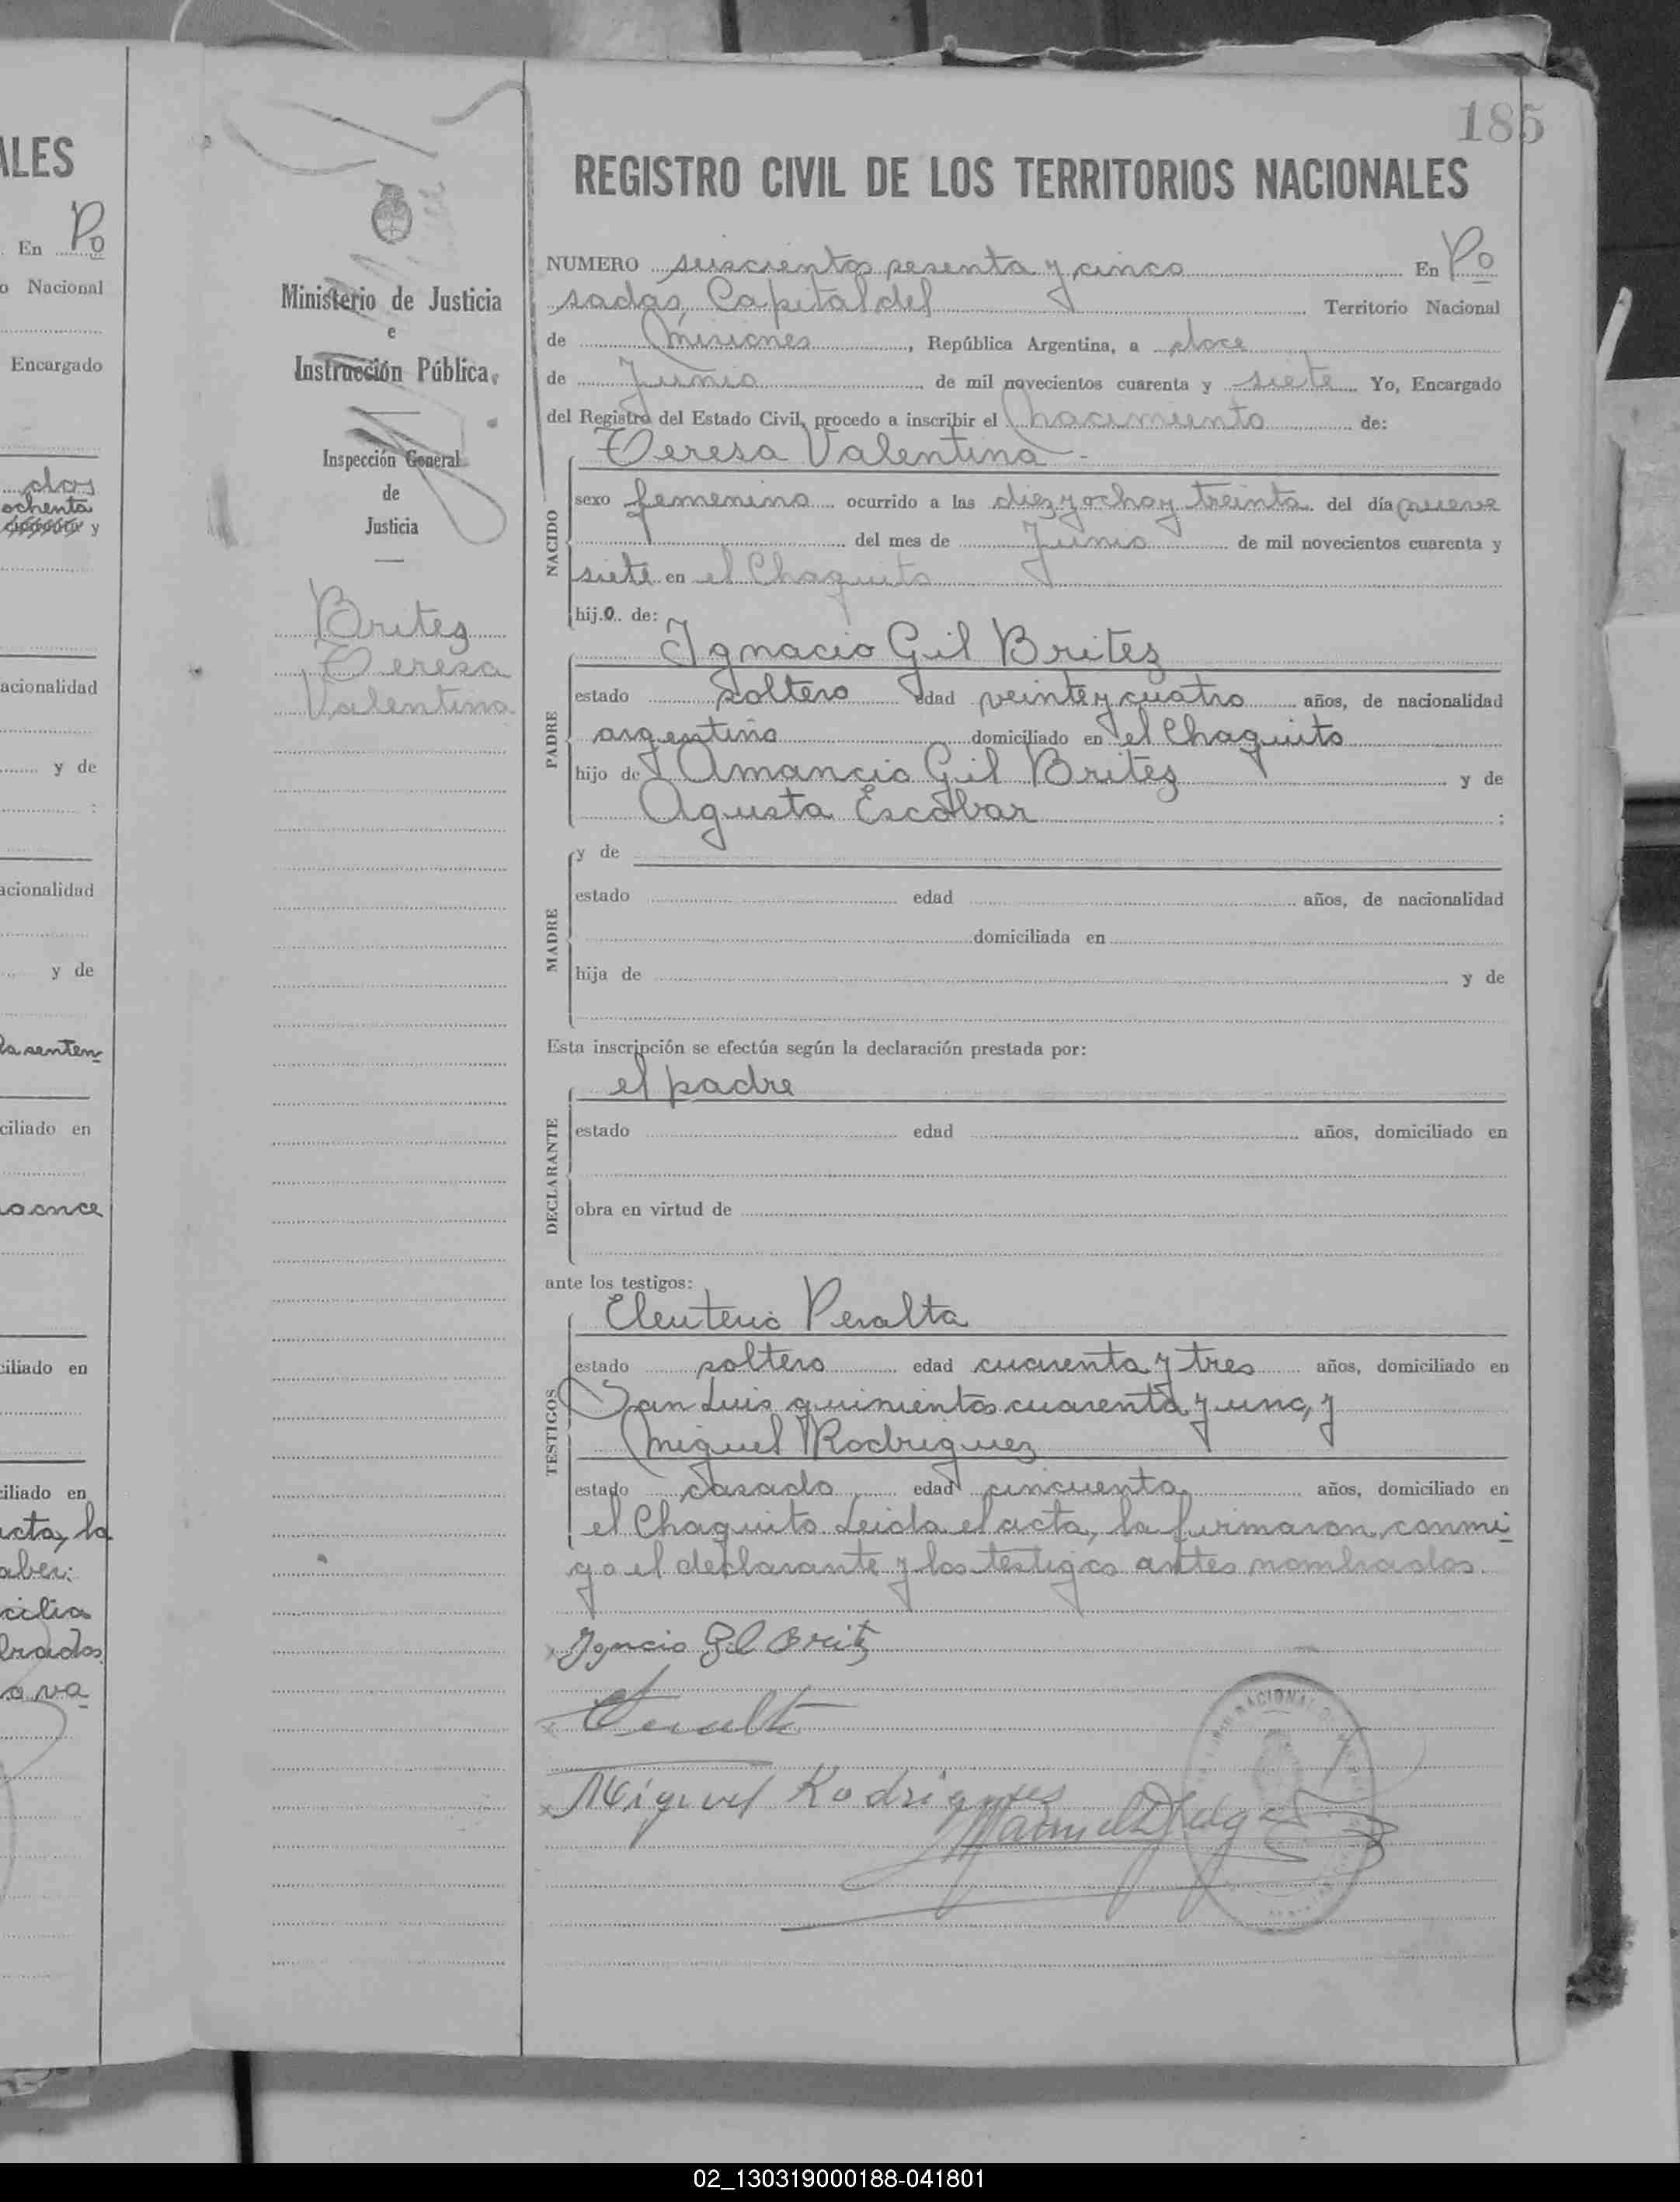 ALES
En Po
o Nacional
Encargado
dos
ochenta
y
acionalidad
y de
:
acionalidad
y de
la senten
ciliado en
a once
ciliado en
ciliado en
acta, la
aber:
cilia
brados
o va
185
Ministerio de Justicia
e
Instrucción Pública
Inspección General
de
Justicia
Britez
Teresa
Valentina
REGISTRO CIVIL DE LOS TERRITORIOS NACIONALES
NUMERO seiscientos sesenta y cinco En Po
sadas, Capital del Territorio Nacional
de Misiones, República Argentina, a doce
de Junio de mil novecientos cuarenta y siete Yo, Encargado
del Registro del Estado Civil, procedo a inscribir el nacimiento de:
Teresa Valentina -
NACIDO
sexo femenino ocurrido a las diez y ocho y treinta del día nueve
del mes de Junio de mil novecientos cuarenta y
siete en el Chaquito
hija de:
Ignacio Gil Britez
PADRE
estado soltero edad veinte y cuatro años, de nacionalidad
argentino domiciliado en el Chaquito
hijo de Amancio Gil Britez y de
Agusta Escobar ;
MADRE
y de
estado edad años, de nacionalidad
domiciliada en
hija de y de
Esta inscripción se efectúa según la declaración prestada por:
el padre
DECLARANTE
estado edad años, domiciliado en
obra en virtud de
ante los testigos:
Eleuterio Peralta
TESTIGOS
estado soltero edad cuarenta y tres años, domiciliado en
San Luis quinientos cuarenta y uno, y
Miguel Rodriguez
estado casado edad cincuenta años, domiciliado en
el Chaquito Leida el acta, la firmaron conmi
go el declarante y los testigos antes nombrados.
Igncio Gil Britz
Peralta
Miguel Rodrigues
02_130319000188-041801